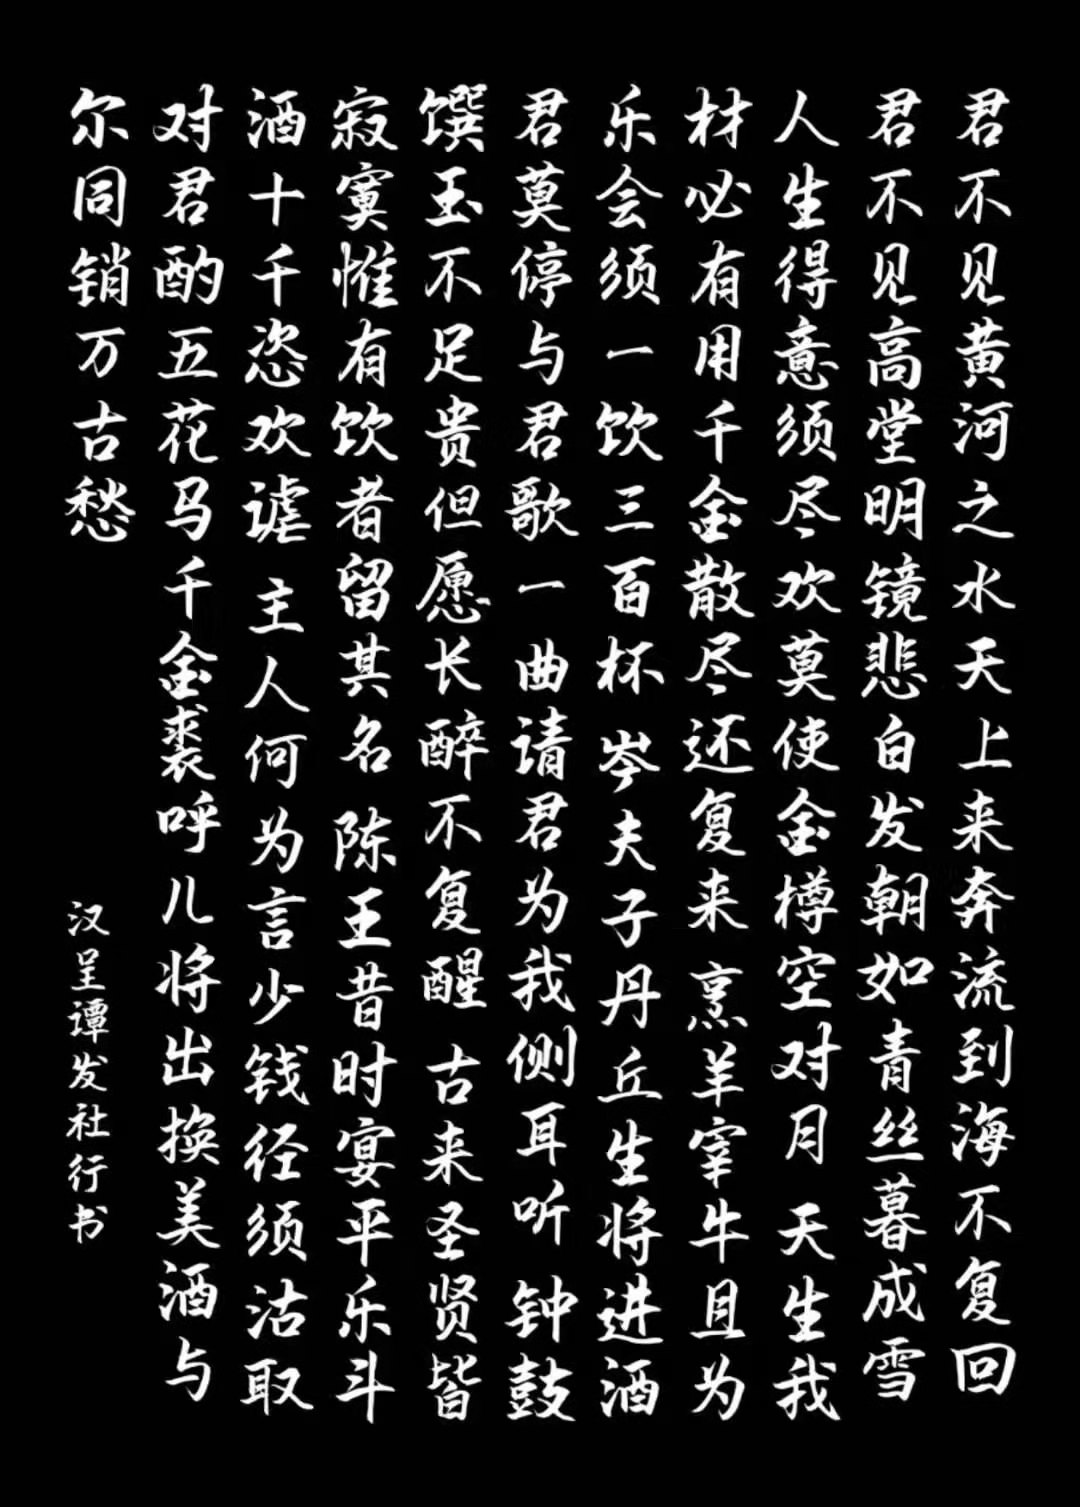 君不见黄河之水天上来奔流到海不复回
君不见高堂明镜悲白发朝如青丝暮成雪
人生得意须尽欢莫使金樽空对月天生我
材必有用千金散尽还复来烹羊宰牛且为
乐会须一饮三百杯岑夫子丹丘生将进酒
君莫停与君歌一曲请君为我侧耳听钟鼓
馔玉不足贵但愿长醉不复醒古来圣贤皆
寂寞惟有饮者留其名陈王昔时宴平乐斗
酒十千恣欢谑主人何为言少钱径须沽取
对君酌五花马千金裘呼儿将出换美酒与
尔同销万古愁
汉呈谭发社行书